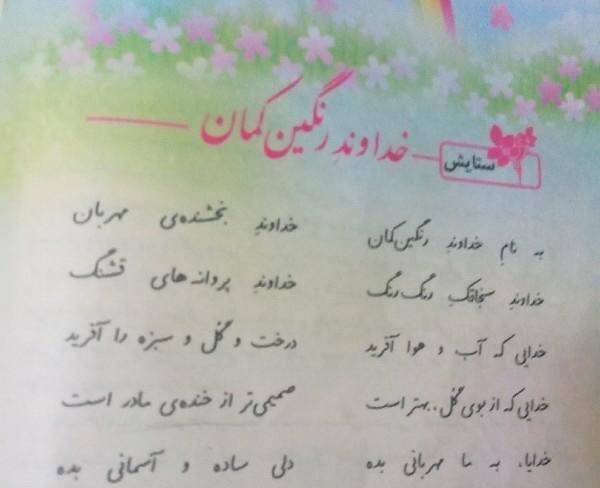 ستایش
خداوندِ رنگین کمان
به نامِ خداوندِ رنگین‌کمان خداوندِ بخشنده‌ی مهربان
خداوندِ سنجاقکِ رنگ رنگ خداوندِ پروانه‌های قشنگ
خدایی که آب و هوا آفرید درخت و گل و سبزه را آفرید
خدایی که از بوی گل، بهتر است صمیمی‌تر از خنده‌ی مادر است
خدایا، به ما مهربانی بده دلی ساده و آسمانی بده